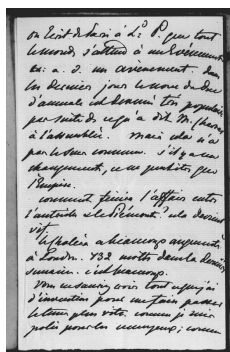 on écrit de Paris à L. P. que tout
le monde s'attend à un Evénement
un avènement. Dans
les derniers jours le nom du Duc
d'Aumale est devenu très populaire
par suite de ce qu'a dit M.
à l'assemblée. Mais cela n'a
pas le sens commun. s'il y a un
changement, ce ne peut être que
l'Empire.
comment finira l'affaire entre
l'Autriche et le Piémont?
vit.
le choléra a beaucoup augmenté
à Londres. 732 morts dans la dernière
semaine. c'est beaucoup.
Vous ne savez pas tout ce que j'ai
d'invention pour me faire passer
le tems plus vite. comme je suis
polie pour les ennuyeux; comme